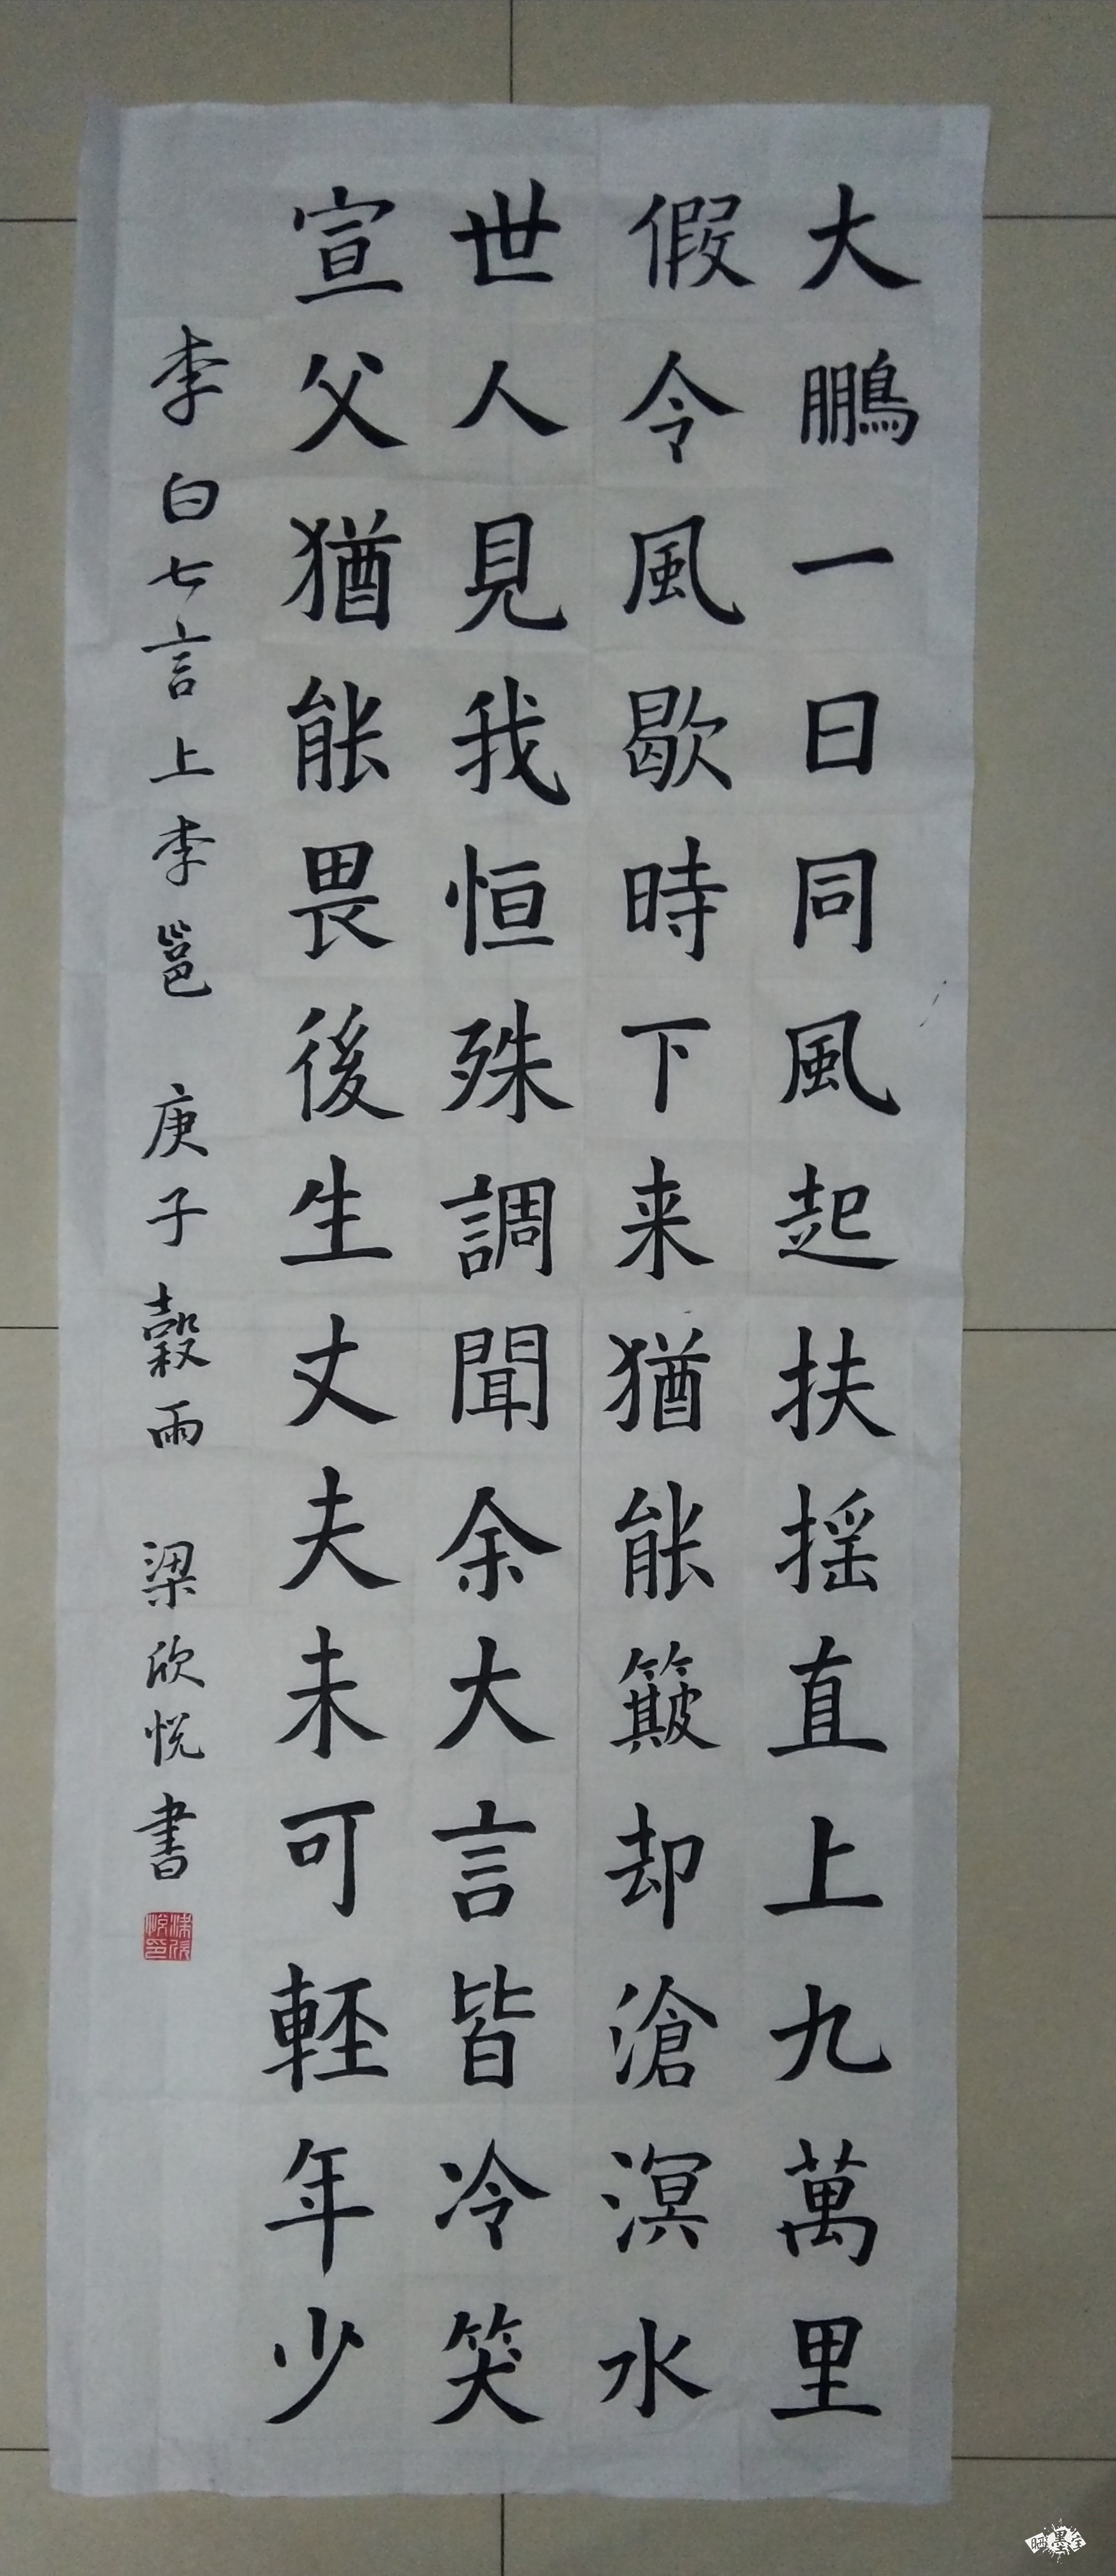 大鵬一日同風起扶摇直上九萬里
假令風歇時下来猶能簸却滄溟水
世人見我恒殊調聞余大言皆冷笑
宣父猶能畏後生丈夫未可輕年少
李白七言上李邕 庚子穀雨 梁欣悦書
梁欣悦印
晒墨宝